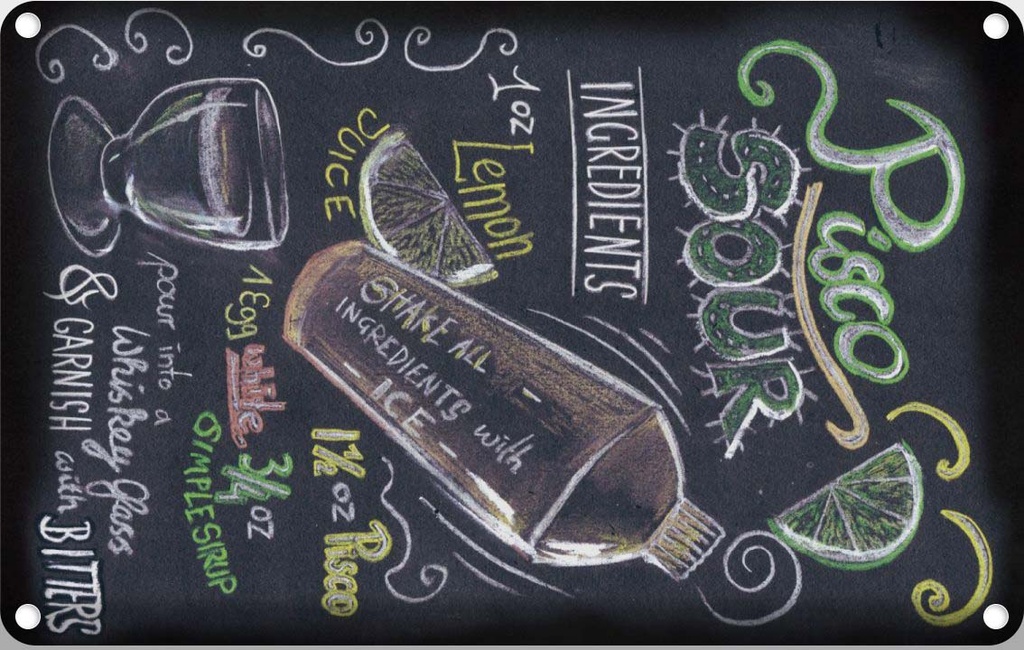 Pisco
SOUR
INGREDIENTS
1 oz Lemon
JUICE
SHAKE ALL
INGREDIENTS with
- ICE -
1 1/2 oz Pisco
1 Egg white
3/4 oz
SIMPLE SIRUP
pour into a
Whiskey Glass
& GARNISH with BITTERS